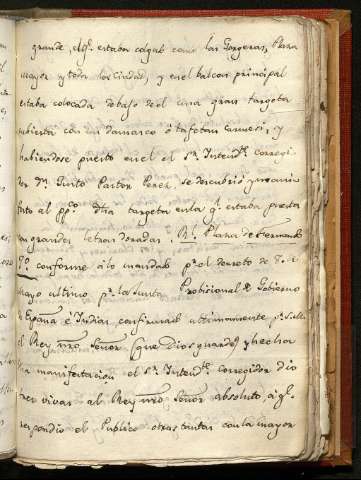 grande, el qe. estaba colgado como las Gorgeras, Plaza
mayor y toda la Ciudad, y en el balcon principal
estaba colocada debajo de una gran targeta
cubierta con un damasco ó tafetan carmesi, y
habiendose puesto en el el Sr. Intende. corregi-
dor Dn. Justo Pastor Perez, se descubrió y
al ppco. dha targeta en la qe. estaba puesta
con grandes letras doradas: Rl. Plaza de Fernando
7º. conforme á lo mandado pr. el decreto de
mayo ultimo pr. la Junta Provicional de Gobierno
de España é Indias confirmado ultimamente pr. S. M.
el Rey nro Señor (que Dios guarde) y hecha
manifestacion el Sr. Intende. corregidor dio
tres vivas al Rey nro Señor absoluto, á qe.
respondio el Publico otras tantas con la mayor